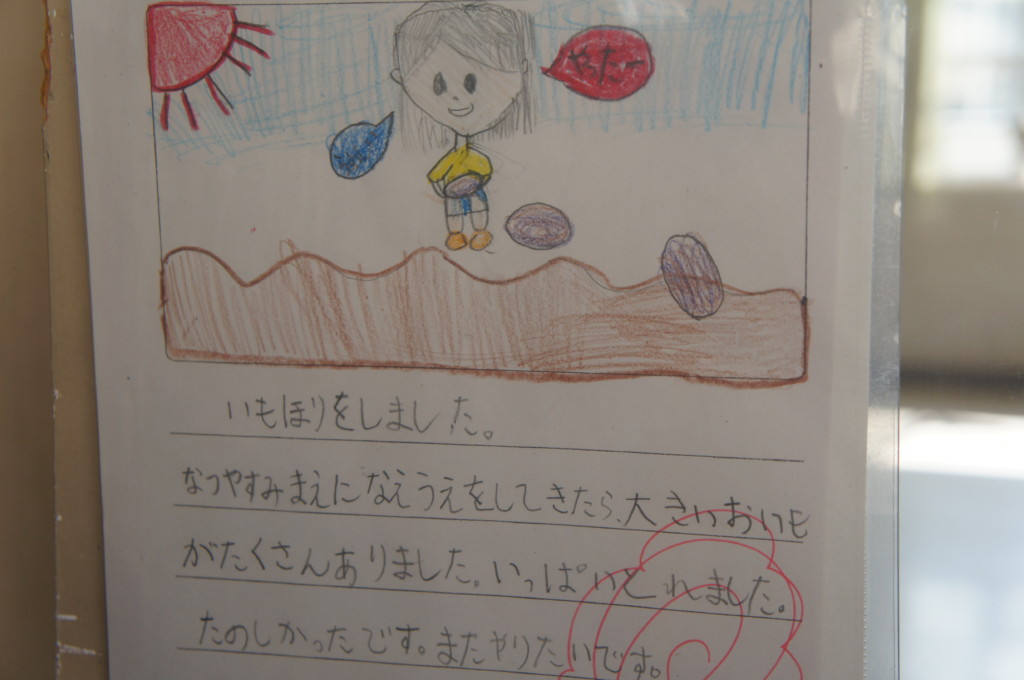 やったー
いもほりをしました。
なつやすみまえになえうえをしてきたら、大きいおいも
がたくさんありました。いっぱいとれました。
たのしかったです。またやりたいです。